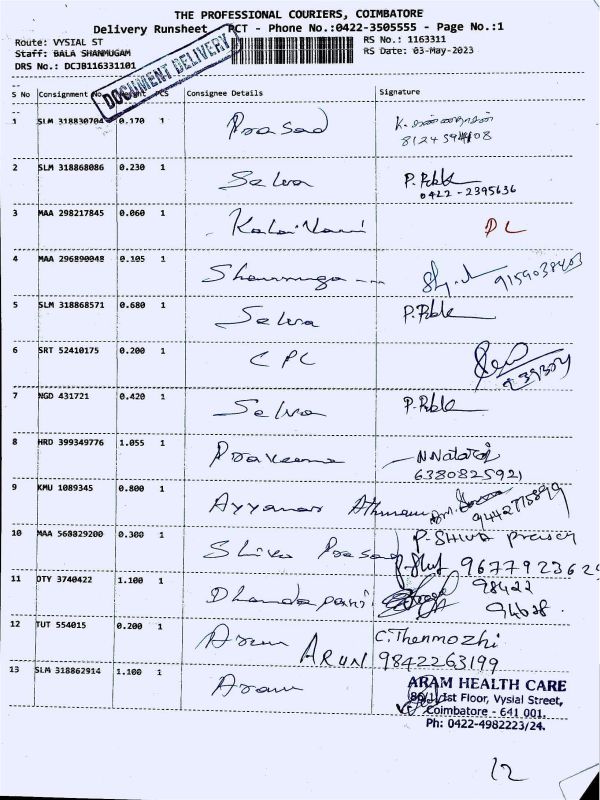 THE PROFESSIONAL COURIERS, COIMBATORE
Delivery Runsheet PCT - Phone No.:0422-3505555 - Page No.:1
Route: VYSIAL ST
RS No.: 1163311
Staff: BALA SHANMUGAM
RS Date: 03-May-2023
DRS No.: DCJB116331101
DOCUMENT DELIVERY
S No Consignment No. PCS Consignee Details Signature
1 SLM 318830704 0.170 1 Prasad K.
2 SLM 318868086 0.230 1 Selva P.
0422-2395636
3 MAA 298217845 0.060 1 KalaiVani
4 MAA 296890048 0.105 1 Shanmuga --- 9159038403
5 SLM 318868571 0.680 1 Selva P.
6 SRT 52410175 0.200 1 CPC
7 NGD 431721 0.420 1 Selva P.
8 HRD 399349776 1.055 1 Praveena N Nataraj
6380825921
9 KMU 1089345 0.800 1 Ayyanar
9442775899
10 MAA 568829200 0.300 1 Shiva Prasad P-SHIVA
11 OTY 3740422 1.100 1 Dhandapani 98422
94628.
12 TUT 554015 0.200 1 Arun ARUN C.Thenmozhi
9842263199
13 SLM 318862914 1.100 1 Aram
ARAM HEALTH CARE
1st Floor, Vysial Street,
Coimbatore - 641 001.
Ph: 0422-4982223/24.
12